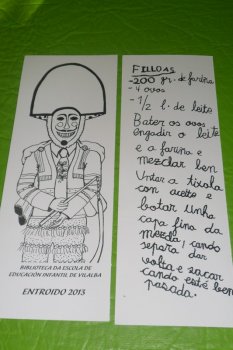 BIBLIOTECA DA ESCOLA DE
EDUCACIÓN INFANTIL DE VILALBA
ENTROIDO 2013
FILLOAS
-200 gr. de fariña
- 4 ovos
- 1/2 l. de leite
Bater os ovos
engadir o leite
e a fariña e
mezclar ben
Untar a tixola
con aceite e
botar unha
capa fina da
mezcla; cando
separa dar
volta e sacar
cando esté ben
pasada.